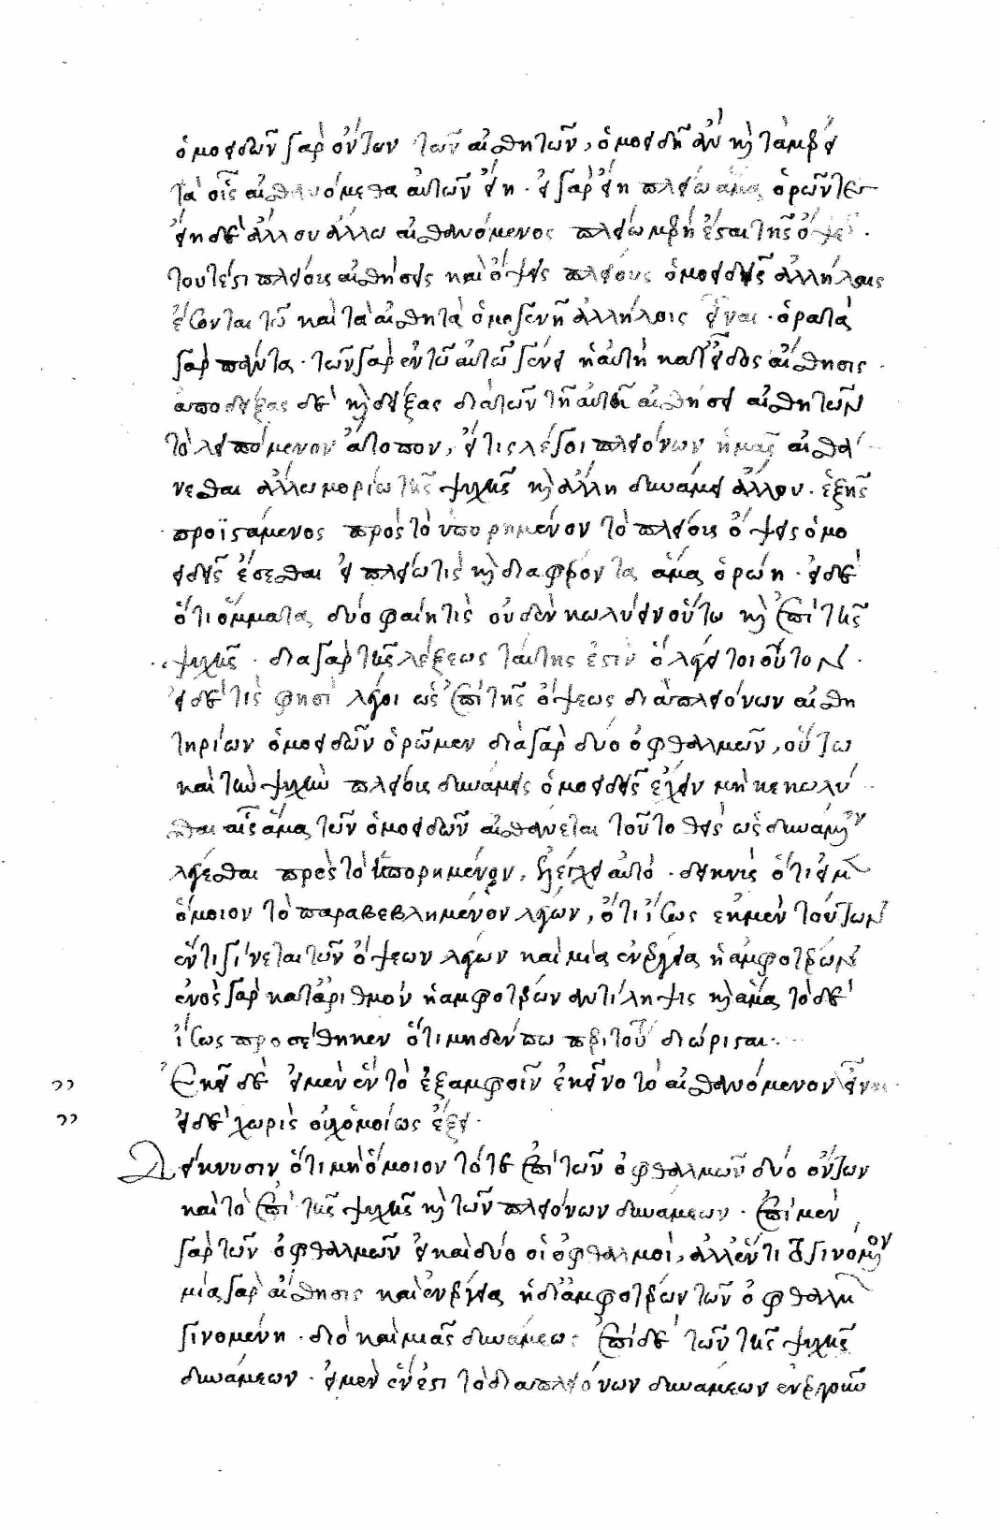 ὁμοειδῶν γὰρ ὄντων τῶν αἰσθητῶν, ὁμοειδῆ ἂν καὶ τὰ μέρη
τὰ οἷς αἰσθανόμεθα αὐτῶν εἴη · εἰ γὰρ εἴη πλείω ἅμα ὁρῶντες
εἴη δὲ ἄλλου ἄλλω αἰσθανόμενος πλείω μέρη ἔσται τῆς ὄψεως ·
τουτέστι πλείους αἰσθήσεις καὶ ὄψεις πλείους ὁμοειδεῖς ἀλλήλαις
ἔσονται τῶ καὶ τὰ αἰσθητὰ ὁμογενῆ ἀλλήλοις εἶναι · ὁρατὰ
γὰρ πάντα · τῶν γὰρ ἐν τῶ αὐτῶ γένει ἡ αὐτὴ κατ' εἶδος αἴσθησις ·
ἀποδείξας δὲ καὶ δείξας διὰ τῶν τῆ αὐτῆ αἰσθήσει αἰσθητῶν
τὸ λειπόμενον ἄτοπον, εἴ τις λέγοι πλειόνων ἡμᾶς αἰσθά
νεσθαι ἄλλω μορίω τῆς ψυχῆς καὶ ἄλλη δυνάμει ἄλλου · ἑξῆς
προϊστάμενος πρὸς τὸ ὑπορημένον τὸ πλείους ὄψεις ὁμο
ειδεῖς ἔσεσθαι εἰ πλείω τις καὶ διαφέροντα ἅμα ὁρώη · εἰ δὲ
ὅτι ὄμματα δύο φαίη τις οὐδὲν κωλύειν οὕτω καὶ ἐπὶ τῆς
ψυχῆς · διὰ γὰρ τῆς λέξεως ταύτης ἐστὶν ὃ λέγει τοιοῦτον ·
εἰ δέ τις φησὶ λέγοι ὡς ἐπὶ τῆς ὄψεως διὰ πλειόνων αἰσθη
τηρίων ὁμοειδῶν ὁρῶμεν διὰ γὰρ δύο ὀφθαλμῶν, οὕτω
καὶ τὴν ψυχὴν πλείους δυνάμεις ὁμοειδεῖς ἔχειν μὴ κεκωλύ
σθαι αἷς ἅμα τῶν ὁμοειδῶν αἰσθάνεται τοῦτο θεὶς ὡς δυνάμενον
λέγεσθαι πρὸς τὸ ὑπορημένον, ἐλέγχει αὐτό · δεικνὺς ὅτι εἰ μὴ
ὅμοιον τὸ παραβεβλημένον λέγων, ὅτι ἴσως ἐκ μὲν τούτων
ἕν τι γίνεται τῶν ὄψεων λέγων καὶ μία ἐνέργεια ἡ ἀμφοτέρων
ἑνὸς γὰρ κατ' ἀριθμὸν ἡ ἀμφοτέρων ἀντίληψις καὶ ἅμα τὸ δὲ
ἴσως προσέθηκεν ὅτι μηδέν πω περὶ τοῦ διώρισται ·
Ἐκεῖ δὲ εἰ μὲν ἓν τὸ ἐξ ἀμφοῖν ἐκεῖνο τὸ αἰσθανόμενον εἶναι ·
εἰ δὲ χωρὶς οὐχ ὁμοίως ἕξει ·
Δείκνυσιν ὅτι μὴ ὅμοιον τό τε ἐπὶ τῶν ὀφθαλμῶν δύο ὄντων
καὶ τὸ ἐπὶ τῆς ψυχῆς καὶ τῶν πλειόνων δυνάμεων · ἐπὶ μὲν
γὰρ τῶν ὀφθαλμῶν εἰ καὶ δύο οἱ ὀφθαλμοὶ, ἀλλ' ἕν τι τὸ γινόμενον
μία γὰρ αἴσθησις καὶ ἐνέργεια ἡ δι' ἀμφοτέρων τῶν ὀφθαλμῶν
γινομένη · διὸ καὶ μιᾶς δυνάμεως · ἐπὶ δὲ τῶν τῆς ψυχῆς
δυνάμεων · εἰ μὲν ἕν ἐστι τὸ διὰ πλειόνων δυνάμεων ἐνεργοῦν